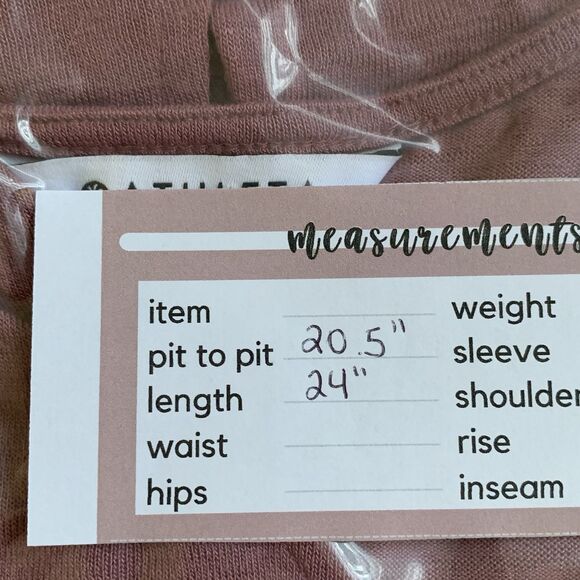 measurements
item
pit to pit 20.5"
length 24"
waist
hips
weight
sleeve
shoulder
rise
inseam